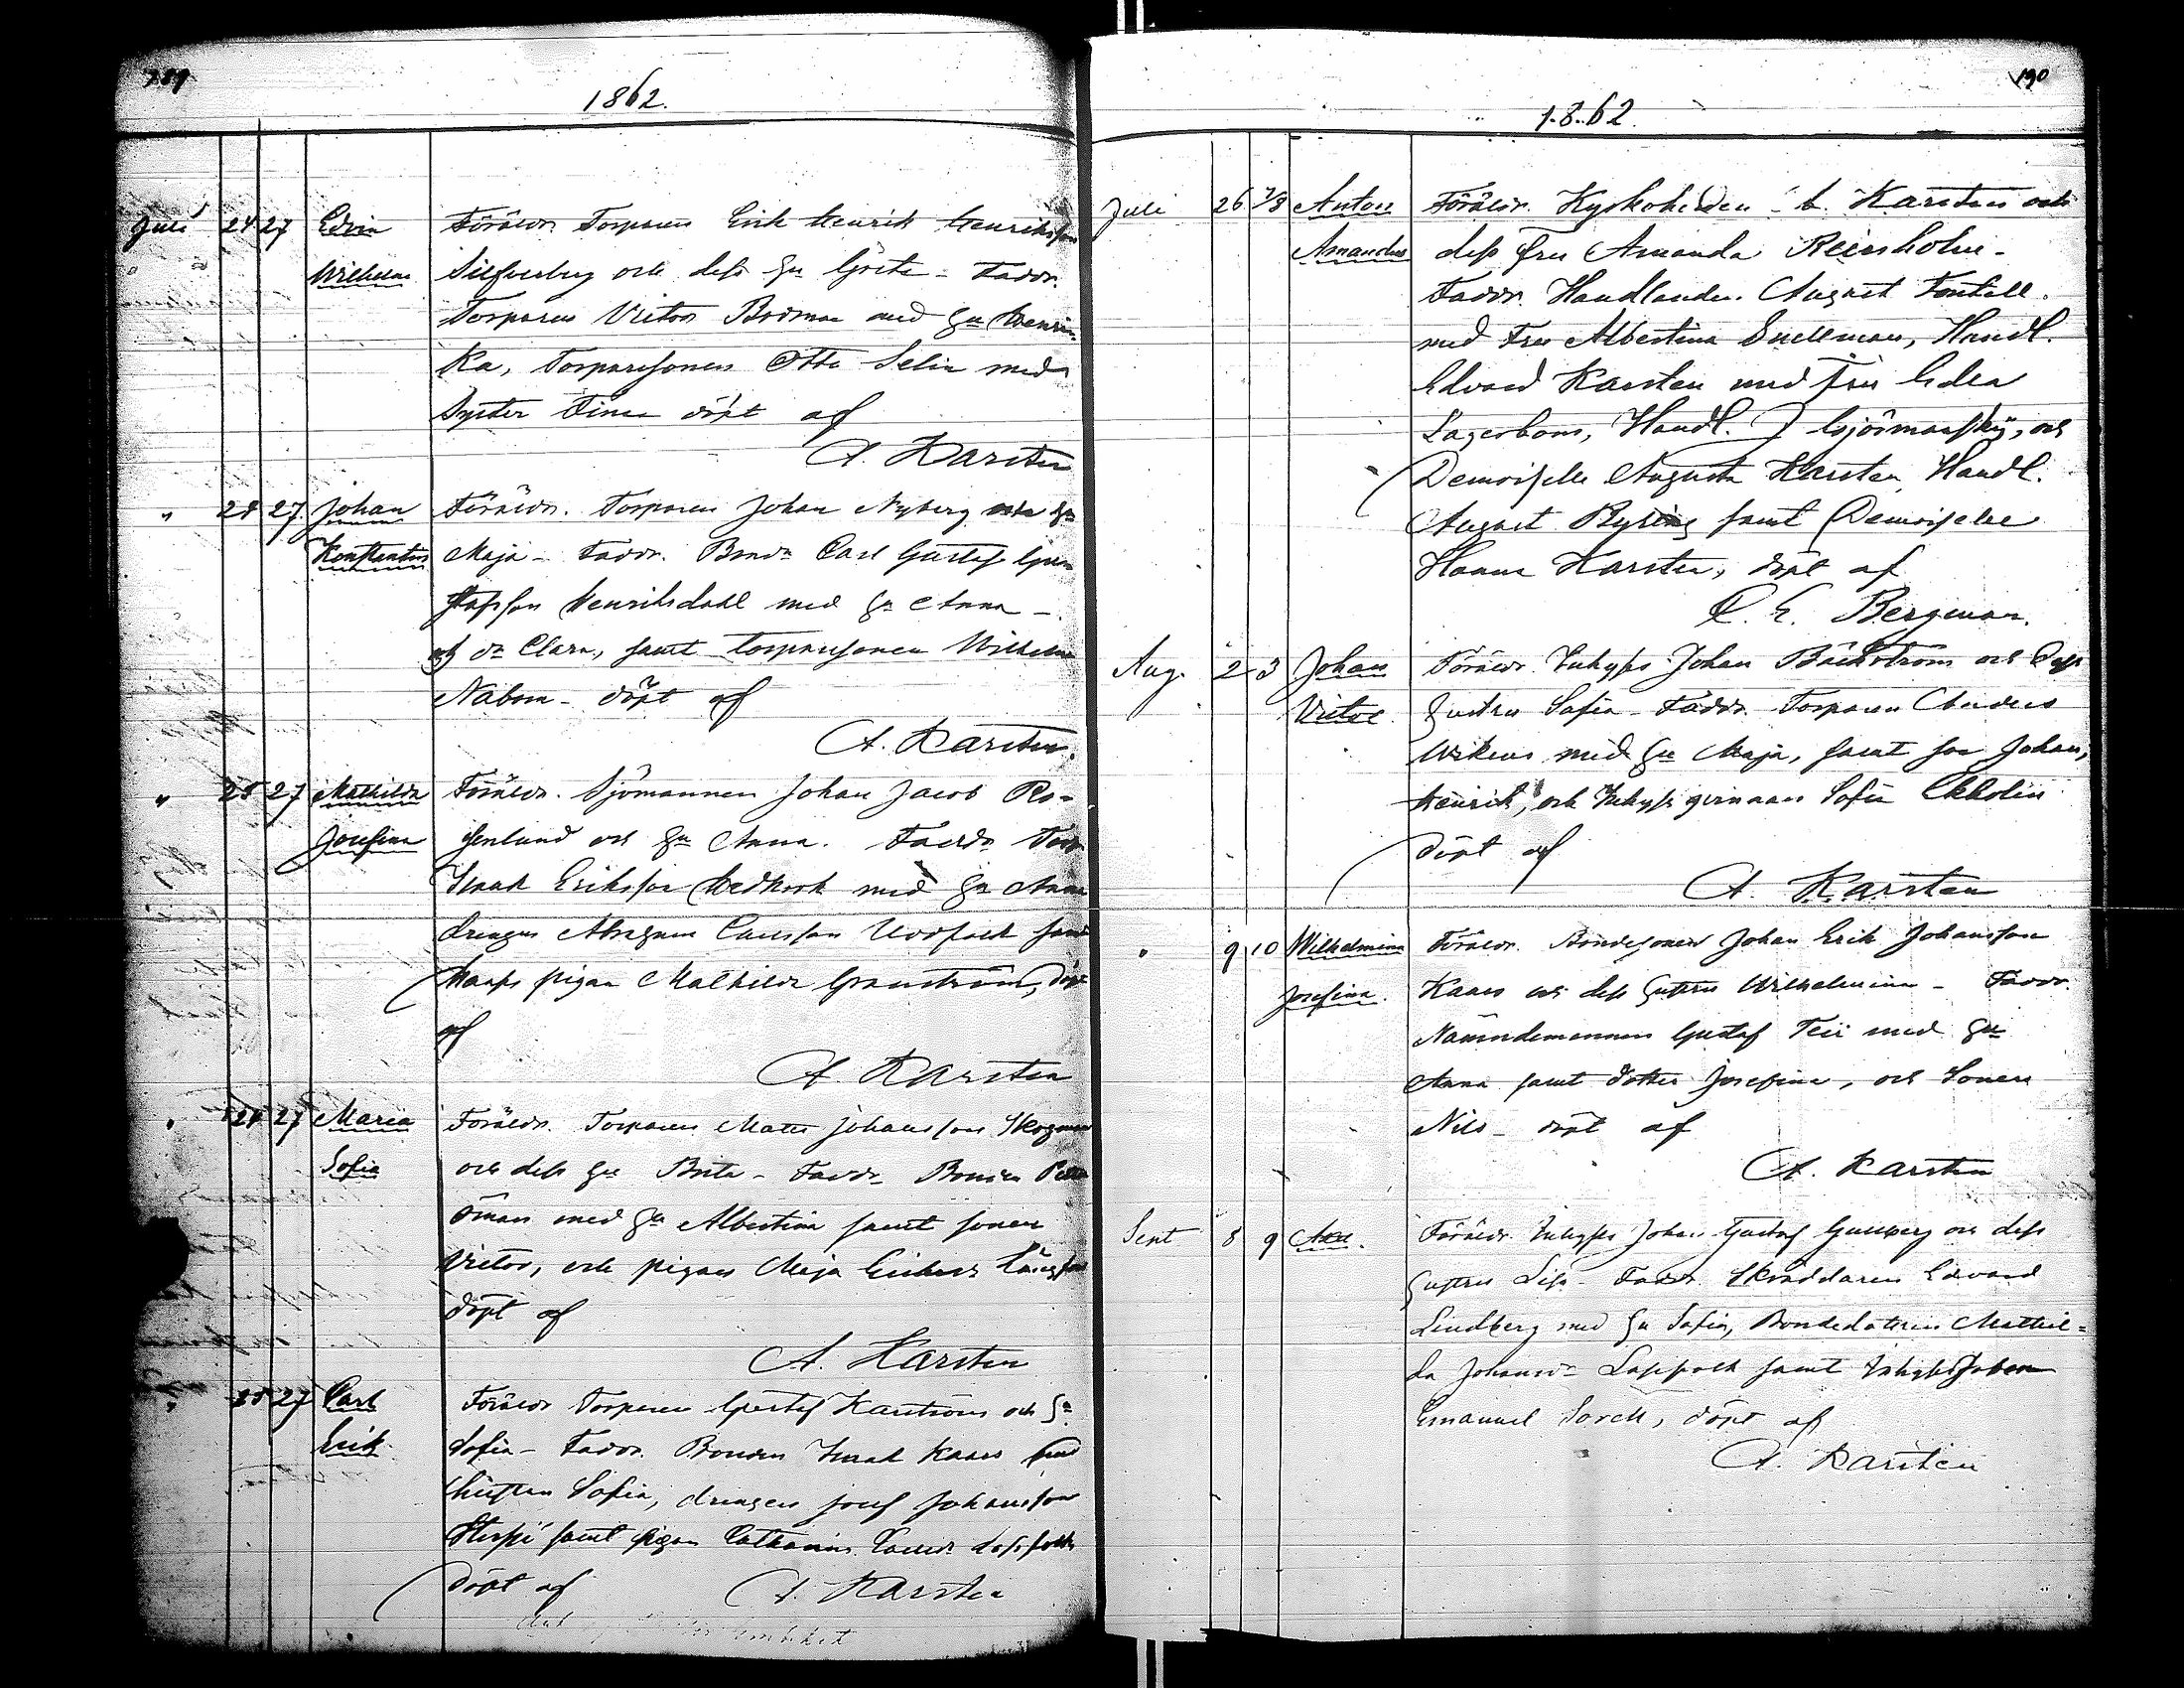 189
1862.
Juli 24 27 Edvin Föräldr. Torparen Erik Henrik Henriksson
Wilhelm Silfverberg och dess hu Greta - Faddr.
Torparen Victor Bodman med hu Henri-
ka, Torparesonen Otto Selin med
Syster Fina döpt af
A. Karsten
" 25 27 Johan Föräldr. Torparen Johan Nyberg och hu
Konstantin Maja - Faddr. Bond. Carl Gustaf Gu-
stafsson Henriksdahl med hu Anna -
dr Clara, samt torparesonen Wilhelm
Nabom - döpt af
A. Karsten.
" 25 27 Mathilda Föräldr. Sjömannen Johan Jacob Ro-
Josefina senlund och hu Anna. Faddr.
Isaak Eriksson med hu Anna
drengen Carlsson
pigan Mathilda Granström, döpt
af
A. Karsten
" 25 27 Maria Föräldr. Torparen Matts Johansson Skogman
Sofia och dess hu Brita - Faddr. Bonden
Öman med hu Albertina samt sonen
Victor, och pigan Maja
döpt af
A. Karsten
" 25 27 Carl Föräldr Torparen Gustaf Karström och hu
Erik Sofia - Faddr. Bonden Isaak Kaars med
hustrun Sofia, drengen Josef Johansson
samt pigan Catharina
döpt af A. Karsten
190
1862.
Juli 26 7/8 Anton Föräldr. Kyrkoherden Karsten och
Amandus dess Fru Amanda Reinholm -
Faddr. Handlanden August Fontell
med Fru Albertina Snellman, Handl.
Edvard Karsten med Fru Edla
Lagerbom, Handl. J och
Demoiselle Augusta Karsten, Handl.
August samt Demoiselle
Hanna Karsten, döpt af
C. E. Bergman.
Aug. 2 3 Johan Föräldr. Inhyses Johan Bäckström och dess
Victor hustru Sofia - Faddr. Torparen Anders
med hu Maja, samt son Johan
Henrik, och Inhyses qvinnan Sofia Ekholm
döpt af
A. Karsten
" 9 10 Wilhelmina Föräldr. Bondesonen Johan Erik Johansson
Josefina. Kaars och dess hustru Wilhelmina - Faddr.
Nämndemannen Gustaf Teir med hu
Anna samt dotter Josefina, och Sonen
Nils - döpt af
A. Karsten
Sept 8 9 Axel. Föräldr. Inhyses Johan Gustaf Gullberg och dess
hustru Lisa - Faddr. Skräddaren Edvard
Lindberg med hu Sofia, Bondedottren Mathil-
da Johansdr Lassfolk samt Inhyses Johan
Emanuel döpt af
A. Karsten